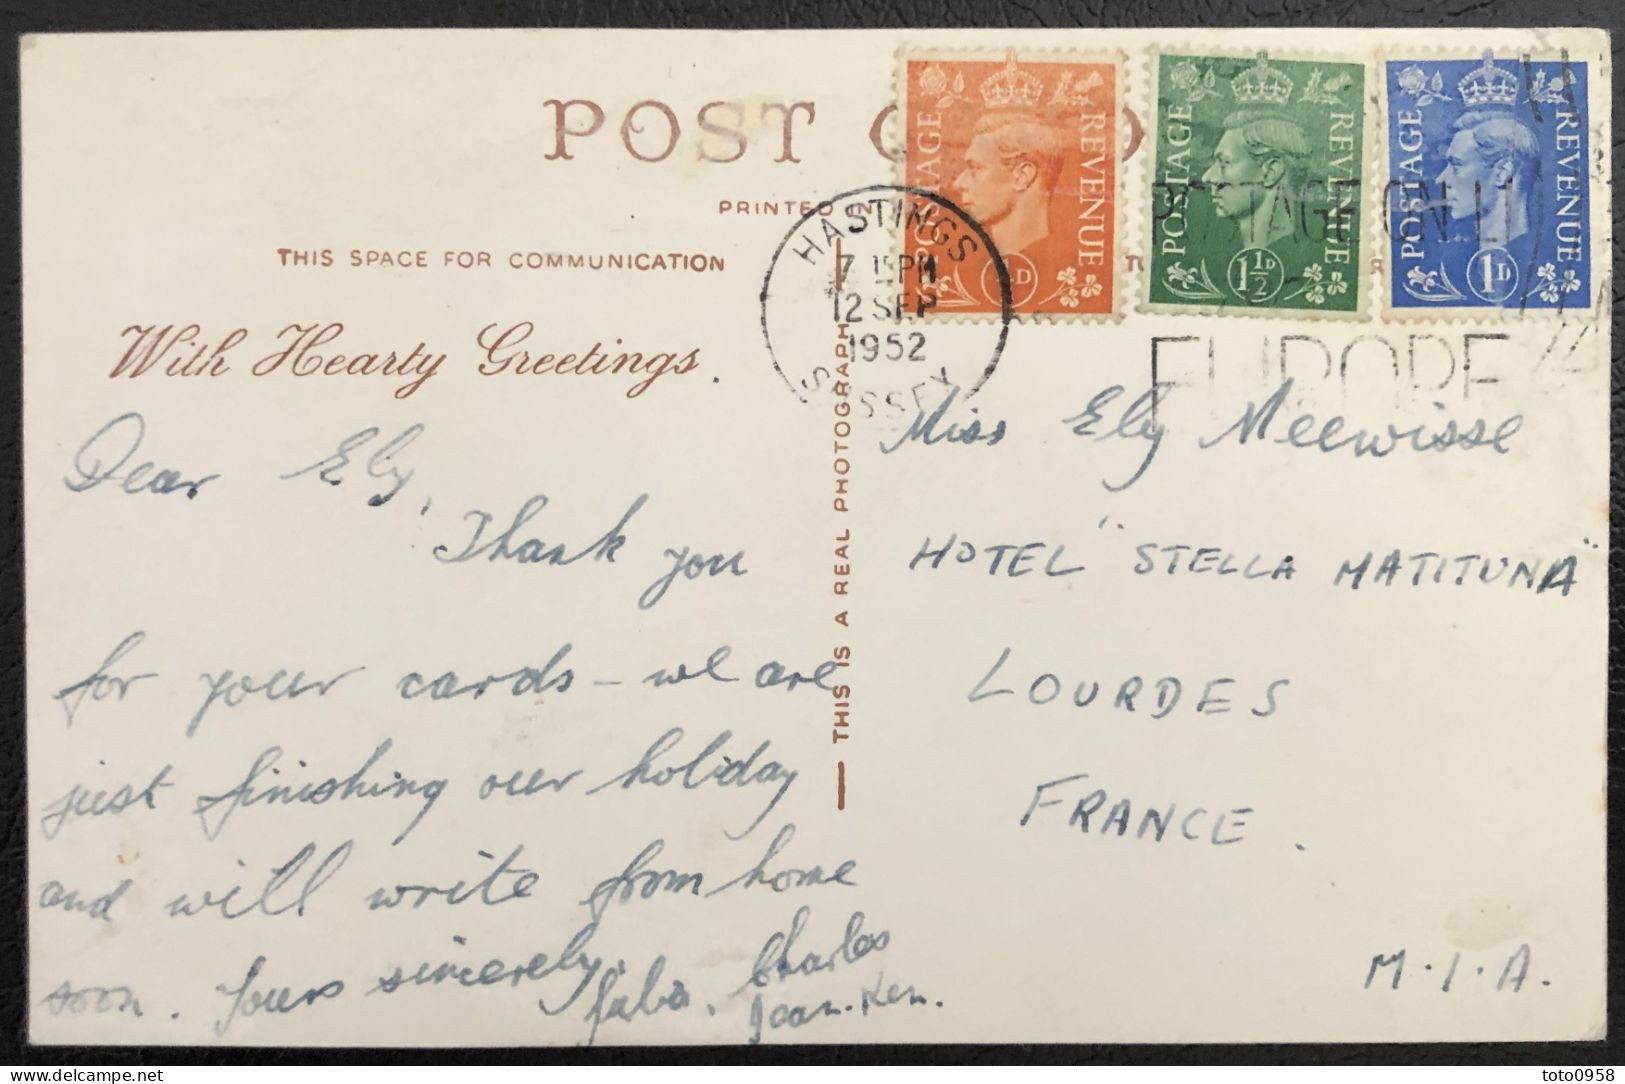 POST
PRINTED IN
THIS SPACE FOR COMMUNICATION
With Hearty Greetings
THIS IS A REAL PHOTOGRAPH
POSTAGE REVENUE
POSTAGE REVENUE 1½D
POSTAGE REVENUE 1D
HASTINGS
7 15PM
12 SEP
1952
SUSSEX
POSTAGE ON
EUROPE
Dear Ely,
Thank you
for your cards - we are
just finishing our holiday
and will write from home
soon. Yours sincerely,
Charles
Jean. Ken.
Miss Ely Meewisse
HOTEL "STELLA MATITUNA"
LOURDES
FRANCE.
M.I.A.
toto0958